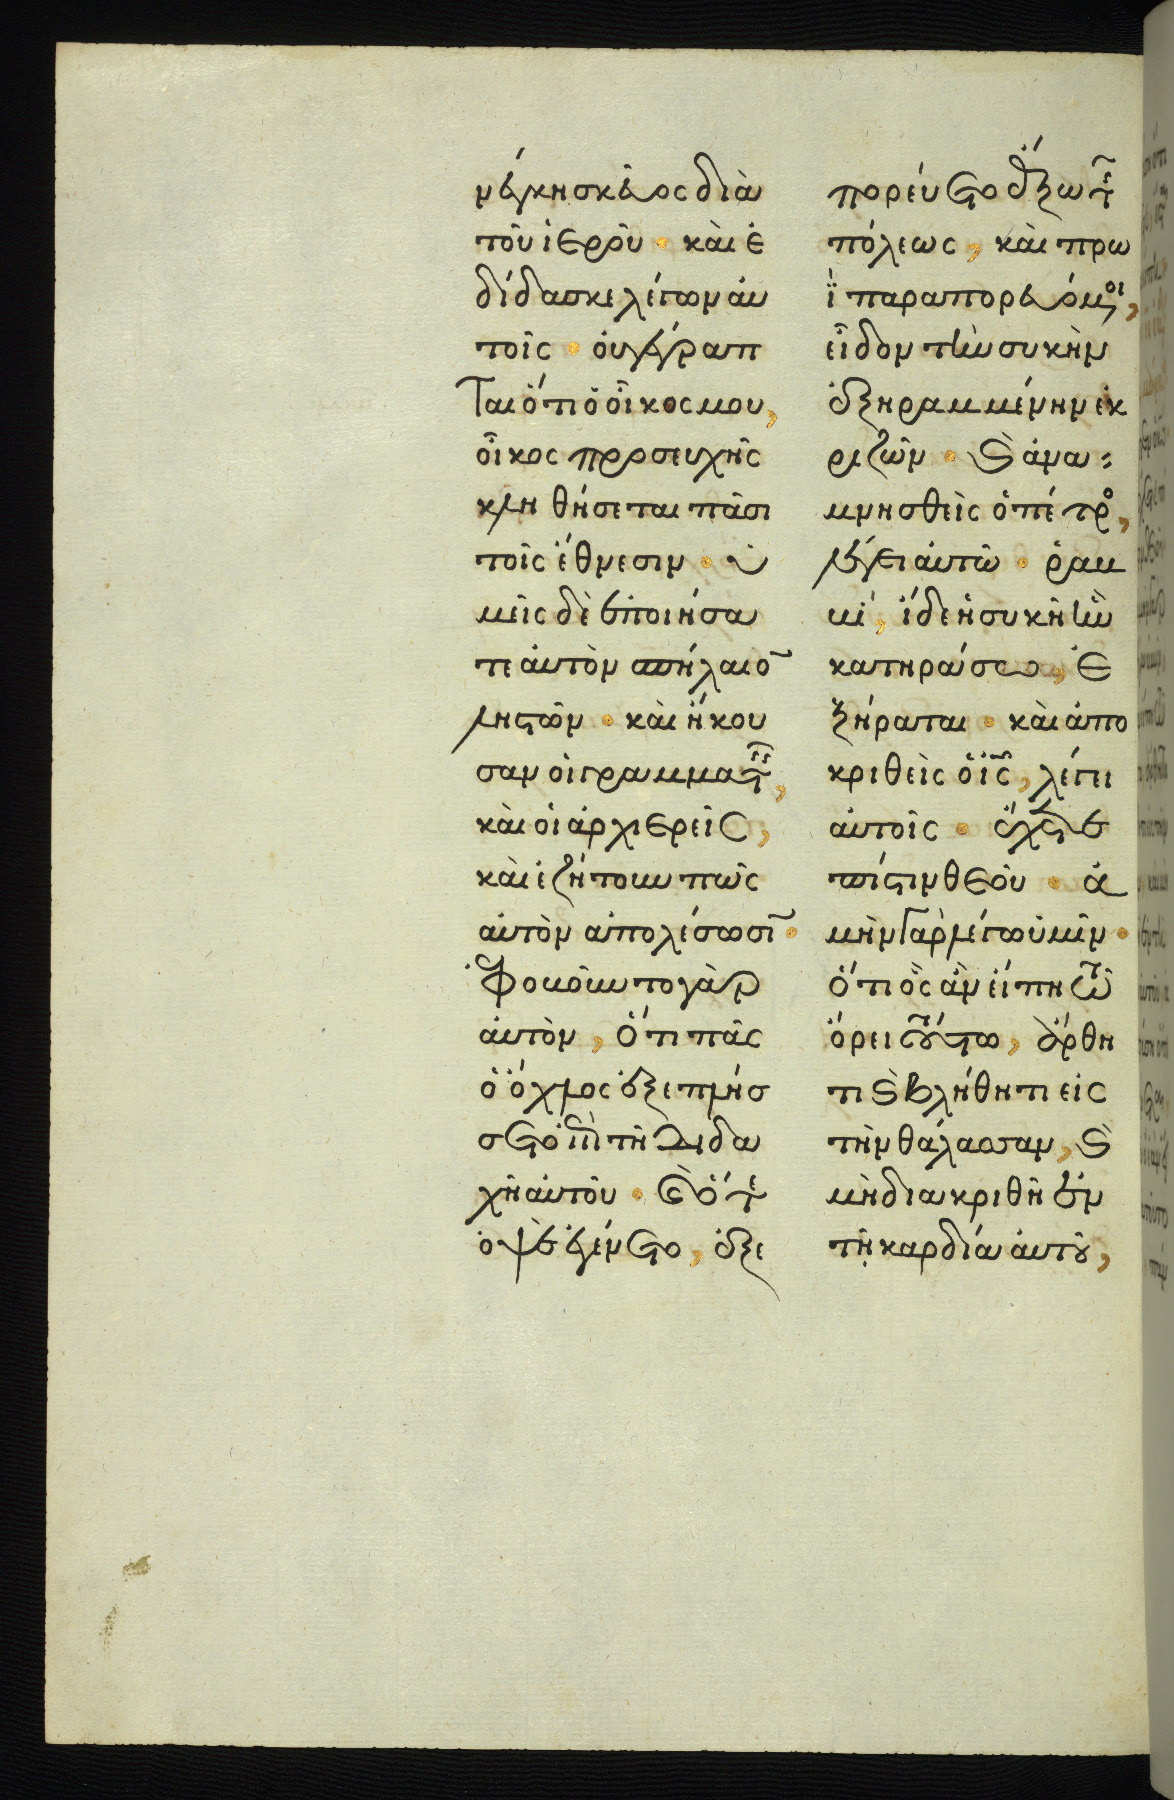 νέγκη σκεῦος διὰ
τοῦ ἱεροῦ · καὶ ἐ
δίδασκε λέγων αὐ
τοῖς · οὐ γέγραπ
ται ὅτι ὁ οἶκος μου,
οἶκος προσευχῆς
κληθήσεται πᾶσι
τοῖς ἔθνεσιν · ὑ
μεῖς δὲ ἐποιήσα
τε αὐτὸν σπήλαιο ̅
ληστῶν · καὶ ἤκου
σαν οἱ γραμματ ̅,
καὶ οἱ ἀρχιερεῖς,
καὶ ἐζήτουν πῶς
αὐτὸν ἀπολέσωσι ̅ ·
ἐφοβοῦντο γὰρ
αὐτὸν, ὅτι πᾶς
ὁ ὄχλος ἐξεπλήσ
σετο ἐπὶ τῆ διδα
χῆ αὐτοῦ · καὶ ὅτε
ὀψὲ ἐγένετο, ἐξε
πορεύετο ἔξω τῆς
πόλεως, καὶ πρω
ῒ παραπορευόμενοι,
εἶδον τὴν συκῆν
ἐξηραμμένην ἐκ
ριζῶν · καὶ ἀνα-
μνησθεὶς ὁ πέτρο,
λέγει αὐτῶ · ῥαβ
βί, ἴδε ἡ συκῆ ἣν
κατηράσω, ἐ
ξήραται · καὶ ἀπο
κριθεὶς ὁ ις ̅, λέγει
αὐτοῖς · ἔχετε
πίστιν θεοῦ · ἀ
μὴν γὰρ λέγω ὑμῖν ·
ὅτι ὃς ἂν εἴπη τῶ
ὄρει τούτω, ἄρθη
τι καὶ βλήθητι εἰς
τὴν θάλασσαν, καὶ
μὴ διακριθῆ ἐν
τῆ καρδία αὐτοῦ,